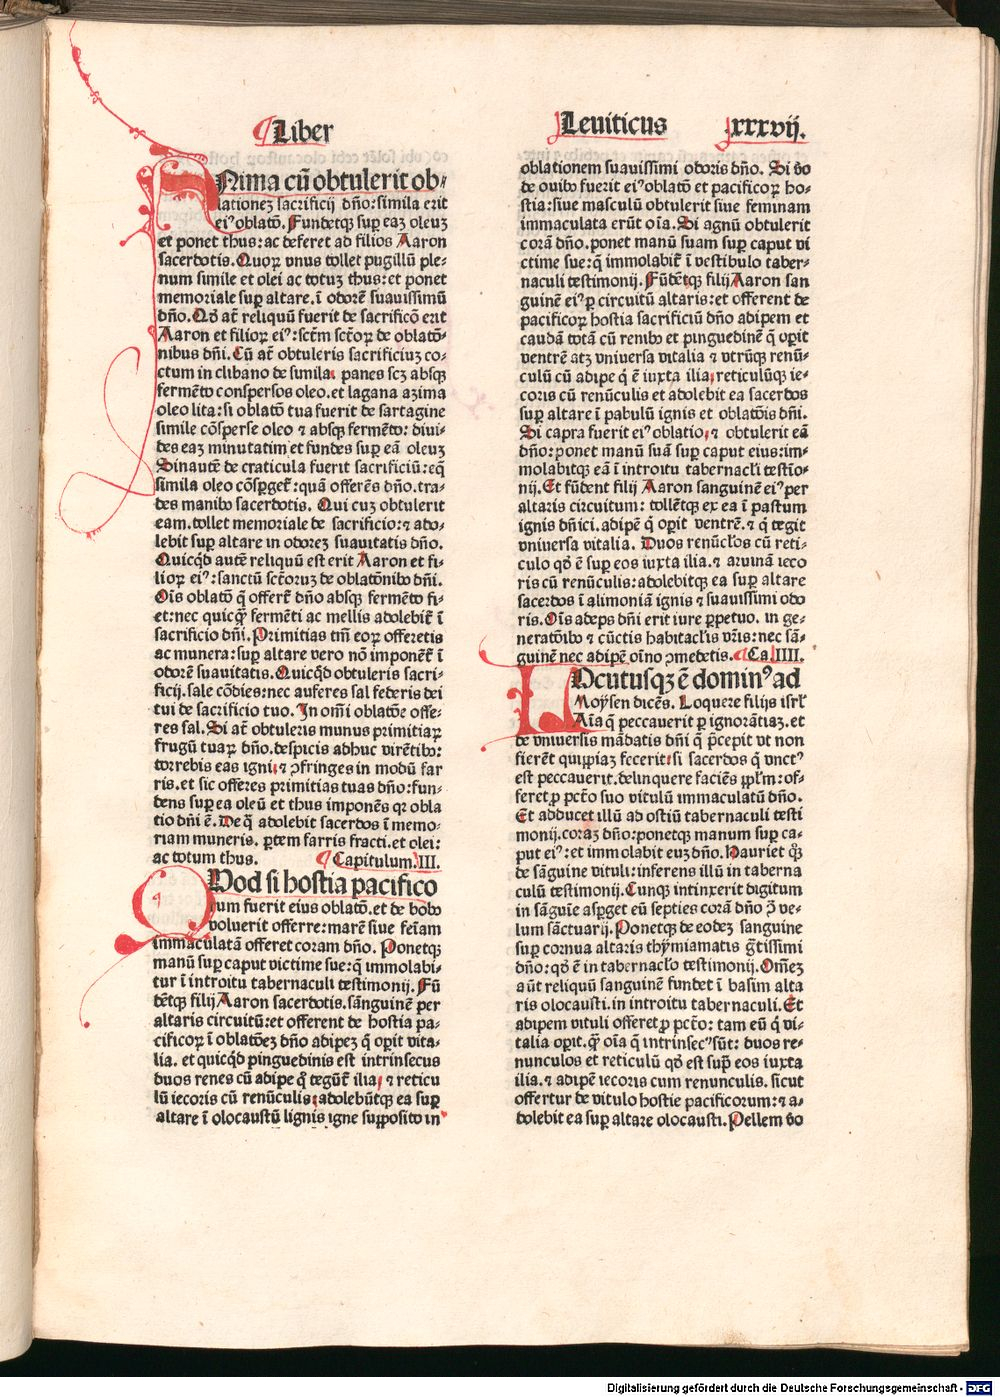 Liber
Leuiticus
xxxvij.
ANima cū obtulerit ob⸗
lationeꝫ sacrificij dño: simila erit
eiꝰ oblatō. Fundetqꝫ suꝑ eaꝫ oleuꝫ
et ponet thus: ac deferet ad filios Aaron
sacerdotis. Quoꝝ vnus tollet pugillū ple⸗
num simile et olei ac totuꝫ thus: et ponet
memoriale suꝑ altare. ī odorē suauissimū
dño. Qđ aūt reliquū fuerit de sacrificō erit
Aaron et filioꝝ eiꝰ: sct̄m sct̄oꝝ de oblatō⸗
nibus dñi. Cū aūt obtuleris sacrificiuꝫ co⸗
ctum in clibano de simila. panes scꝫ absqꝫ
fermēto conspersos oleo. et lagana azima
oleo lita: si oblatō tua fuerit de sartagine
simile cōsperse oleo ⁊ absqꝫ fermēto: diui⸗
des eaꝫ minutatim et fundes suꝑ eā oleuꝫ
Sinautē de craticula fuerit sacrificiū: eqꝫ
simila oleo cōsꝑget̄: quā offerēs dño. tra⸗
des manibꝰ sacerdotis. Qui cuꝫ obtulerit
eam. tollet memoriale de sacrificio: ⁊ ado⸗
lebit suꝑ altare in odoreꝫ suauitatis dño.
Quicqd̄ autē reliquū est erit Aaron et fi⸗
lioꝝ eiꝰ: sanctū sct̄oruꝫ de oblatōnibꝰ dñi.
Oīs oblatō q̄ offert̄ dño absqꝫ fermēto fi⸗
et: nec quicqꝫ fermēti ac mellis adolebit̄ ī
sacrificio dñi. Primitias tm̄ eoꝝ offeretis
ac munera: suꝑ altare vero nō imponēt̄ ī
odorē suauitatis. Quicqd̄ obtuleris sacri⸗
ficij. sale cōdies: nec auferes sal federis dei
tui de sacrificio tuo. In om̄i oblatōe offe⸗
res sal. Si aūt obtuleris munus primitiaꝝ
frugū tuaꝝ dño. despicis adhuc virētibꝰ:
torrebis eas igni. ⁊ ꝯfringes in modū far
ris. et sic offeres primitias tuas dño: fun⸗
dens suꝑ ea oleū et thus imponēs qꝛ obla
tio dñi ē. De q̄ adolebit sacerdos ī memo⸗
riam muneris. ꝑtem farris fracti. et olei:
ac totum thus. Capitulum. III.
QVod si hostia pacifico
rum fuerit eius oblatō. et de bobꝰ
voluerit offerre: marē siue feīam
immaculatā offeret coram dño. Ponetqꝫ
manū suꝑ caput victime sue: q̄ immolabi⸗
tur ī introitu tabernaculi testimonij. Fū
dētqꝫ filij Aaron sacerdotis. sanguinē per
altaris circuitū: et offerent de hostia pa⸗
cificoꝝ ī oblatōeꝫ dño adipeꝫ q̄ oꝑit vita⸗
lia. et quicqd̄ pinguedinis est intrinsecus
duos renes cū adipe q̄ tegūt̄ ilia. ⁊ reticu
lū iecoris cū renūculis: adolebūtqꝫ ea suꝑ
altare ī olocaustū lignis igne supposito in
oblationem suauissimi odoris dño. Si ꝟo
de ouibꝰ fuerit eiꝰ oblatō et pacificoꝝ ho⸗
stia: siue masculū obtulerit siue feminam
immaculata erūt oīa. Si agnū obtulerit
corā dño. ponet manū suam suꝑ caput vi
ctime sue: q̄ immolabit̄ ī vestibulo taber⸗
naculi testimonij. Fūdētqꝫ filij Aaron san
guinē eiꝰ ꝑ circuitū altaris: et offerent de
pacificoꝝ hostia sacrificiū dño adipem et
caudā totā cū renibꝰ et pinguedinē q̄ oꝑit
ventrē atqꝫ vniuersa vitalia ⁊ vtrūqꝫ renū⸗
culū cū adipe q̄ ē iuxta ilia. reticulūqꝫ ie⸗
coris cū renūculis et adolebit ea sacerdos
suꝑ altare ī pabulū ignis et oblatōis dñi.
Si capra fuerit eiꝰ oblatio. ⁊ obtulerit eā
dño: ponet manū suā suꝑ caput eius: im⸗
molabitqꝫ eā ī introitu tabernacl̄i testīo⸗
nij. Et fūdent filij Aaron sanguinē eiꝰ per
altaris circuitum: tollētqꝫ ex ea ī pastum
ignis dñici. adipē q̄ oꝑit ventrē. ⁊ q̄ tegit
vniuersa vitalia. Duos renūcl̄os cū reti⸗
culo qđ ē suꝑ eos iuxta ilia. ⁊ aruinā ieco
ris cū renūculis: adolebitqꝫ ea suꝑ altare
sacerdos ī alimoniā ignis ⁊ suauissimi odo
ris. Oīs adeps dñi erit iure ꝑpetuo. in ge⸗
neratōnibꝰ ⁊ cūctis habitacl̄is vr̄is: nec sā⸗
guinē nec adipē oīno ꝯmedetis. Ca. IIII.
LOcutusqꝫ ē dominꝰ ad
Moysen dicēs. Loquere filijs isrl̄
Aīa q̄ peccauerit ꝑ ignorātiaꝫ. et
de vniuersis mādatis dñi q̄ p̄cepit vt non
fierēt quippiaꝫ fecerit: si sacerdos q̄ vnctꝰ
est peccauerit. delinquere faciēs ppl̄m: of⸗
feret ꝓ pctō suo vitulū immaculatū dño.
Et adducet illū ad ostiū tabernaculi testi
monij. coraꝫ dño: ponetqꝫ manum suꝑ ca⸗
put eiꝰ: et immolabit euꝫ dño. Hauriet qꝫ
de sāguine vituli: inferens illū in taberna
culū testimonij. Cunqꝫ intinxerit digitum
in sāguīe asꝑget eū septies corā dño ꝯ̄ ve⸗
lum sāctuarij. Ponetqꝫ de eodeꝫ sanguine
suꝑ cornua altaris thymiamatis gr̄tissimi
dño: qđ ē in tabernacl̄o testimonij. Omēꝫ
aūt reliquū sanguinē fundet ī basim alta
ris olocausti. in introitu tabernaculi. Et
adipem vituli offeret ꝓ pctō: tam eū q̄ vi⸗
talia oꝑit. qꝫ oīa q̄ intrinsecꝰ sūt: duos re⸗
nunculos et reticulū qđ est suꝑ eos iuxta
ilia. ⁊ adipē iecoris cum renunculis. sicut
offertur de vitulo hostie pacificorum: ⁊ a⸗
dolebit ea suꝑ altare olocausti. Pellem ꝟo
Digitalisierung gefördert durch die Deutsche Forschungsgemeinschaft - DFG